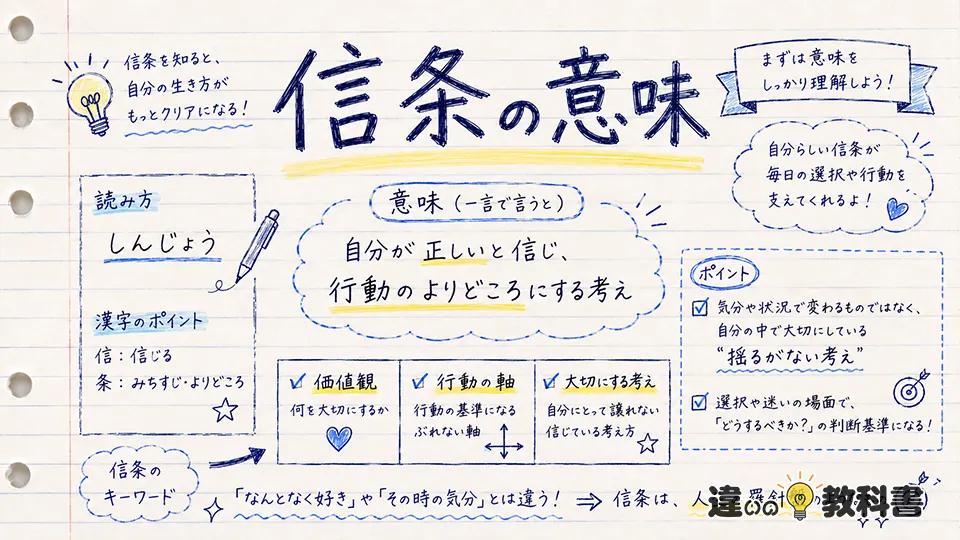 信条を知ると、
自分の生き方が
もっとクリアになる！
信条の意味
まずは意味を
しっかり理解しよう！
自分らしい信条が
毎日の選択や行動を
支えてくれるよ！
読み方
しんじょう
漢字のポイント
信：信じる
条：みちすじ・よりどころ
意味（一言で言うと）
自分が正しいと信じ、
行動のよりどころにする考え
価値観
何を大切にするか
行動の軸
行動の基準になる
ぶれない軸
大切にする考え
自分にとって譲れない
信じている考え方
ポイント
気分や状況で変わるものではなく、
自分の中で大切にしている
“揺るがない考え”
選択や迷いの場面で、
「どうするべきか？」の判断基準になる！
信条の
キーワード
「なんとなく好き」や「その時の気分」とは違う！ ⇒ 信条は、人
羅針
違いの教科書